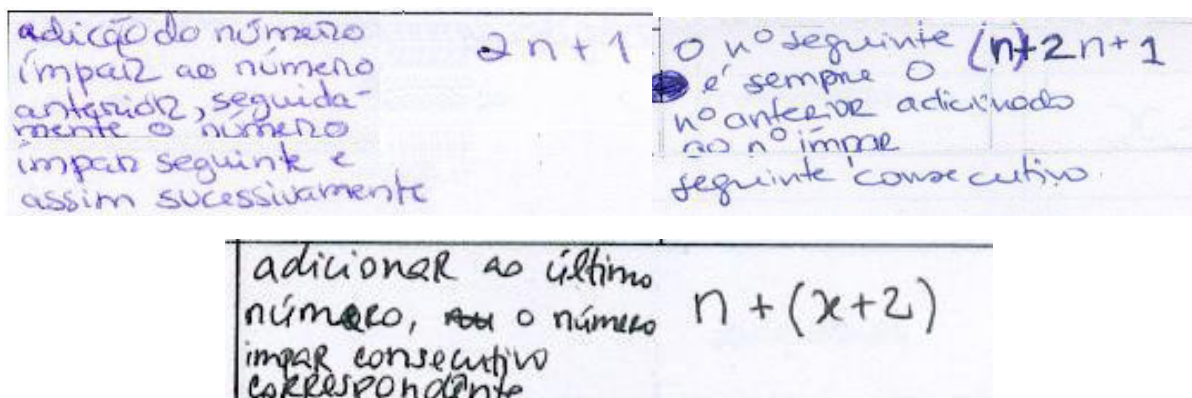 adição do número
ímpar ao número
anterior, seguida-
mente o número
ímpar seguinte e
assim sucessivamente
2n + 1
O nº seguinte
é sempre o
nº anterior adicionado
ao nº ímpar
seguinte consecutivo.
(n)+2n+1
adicionar ao último
número, o número
impar consecutivo
correspondente
n + (x+2)